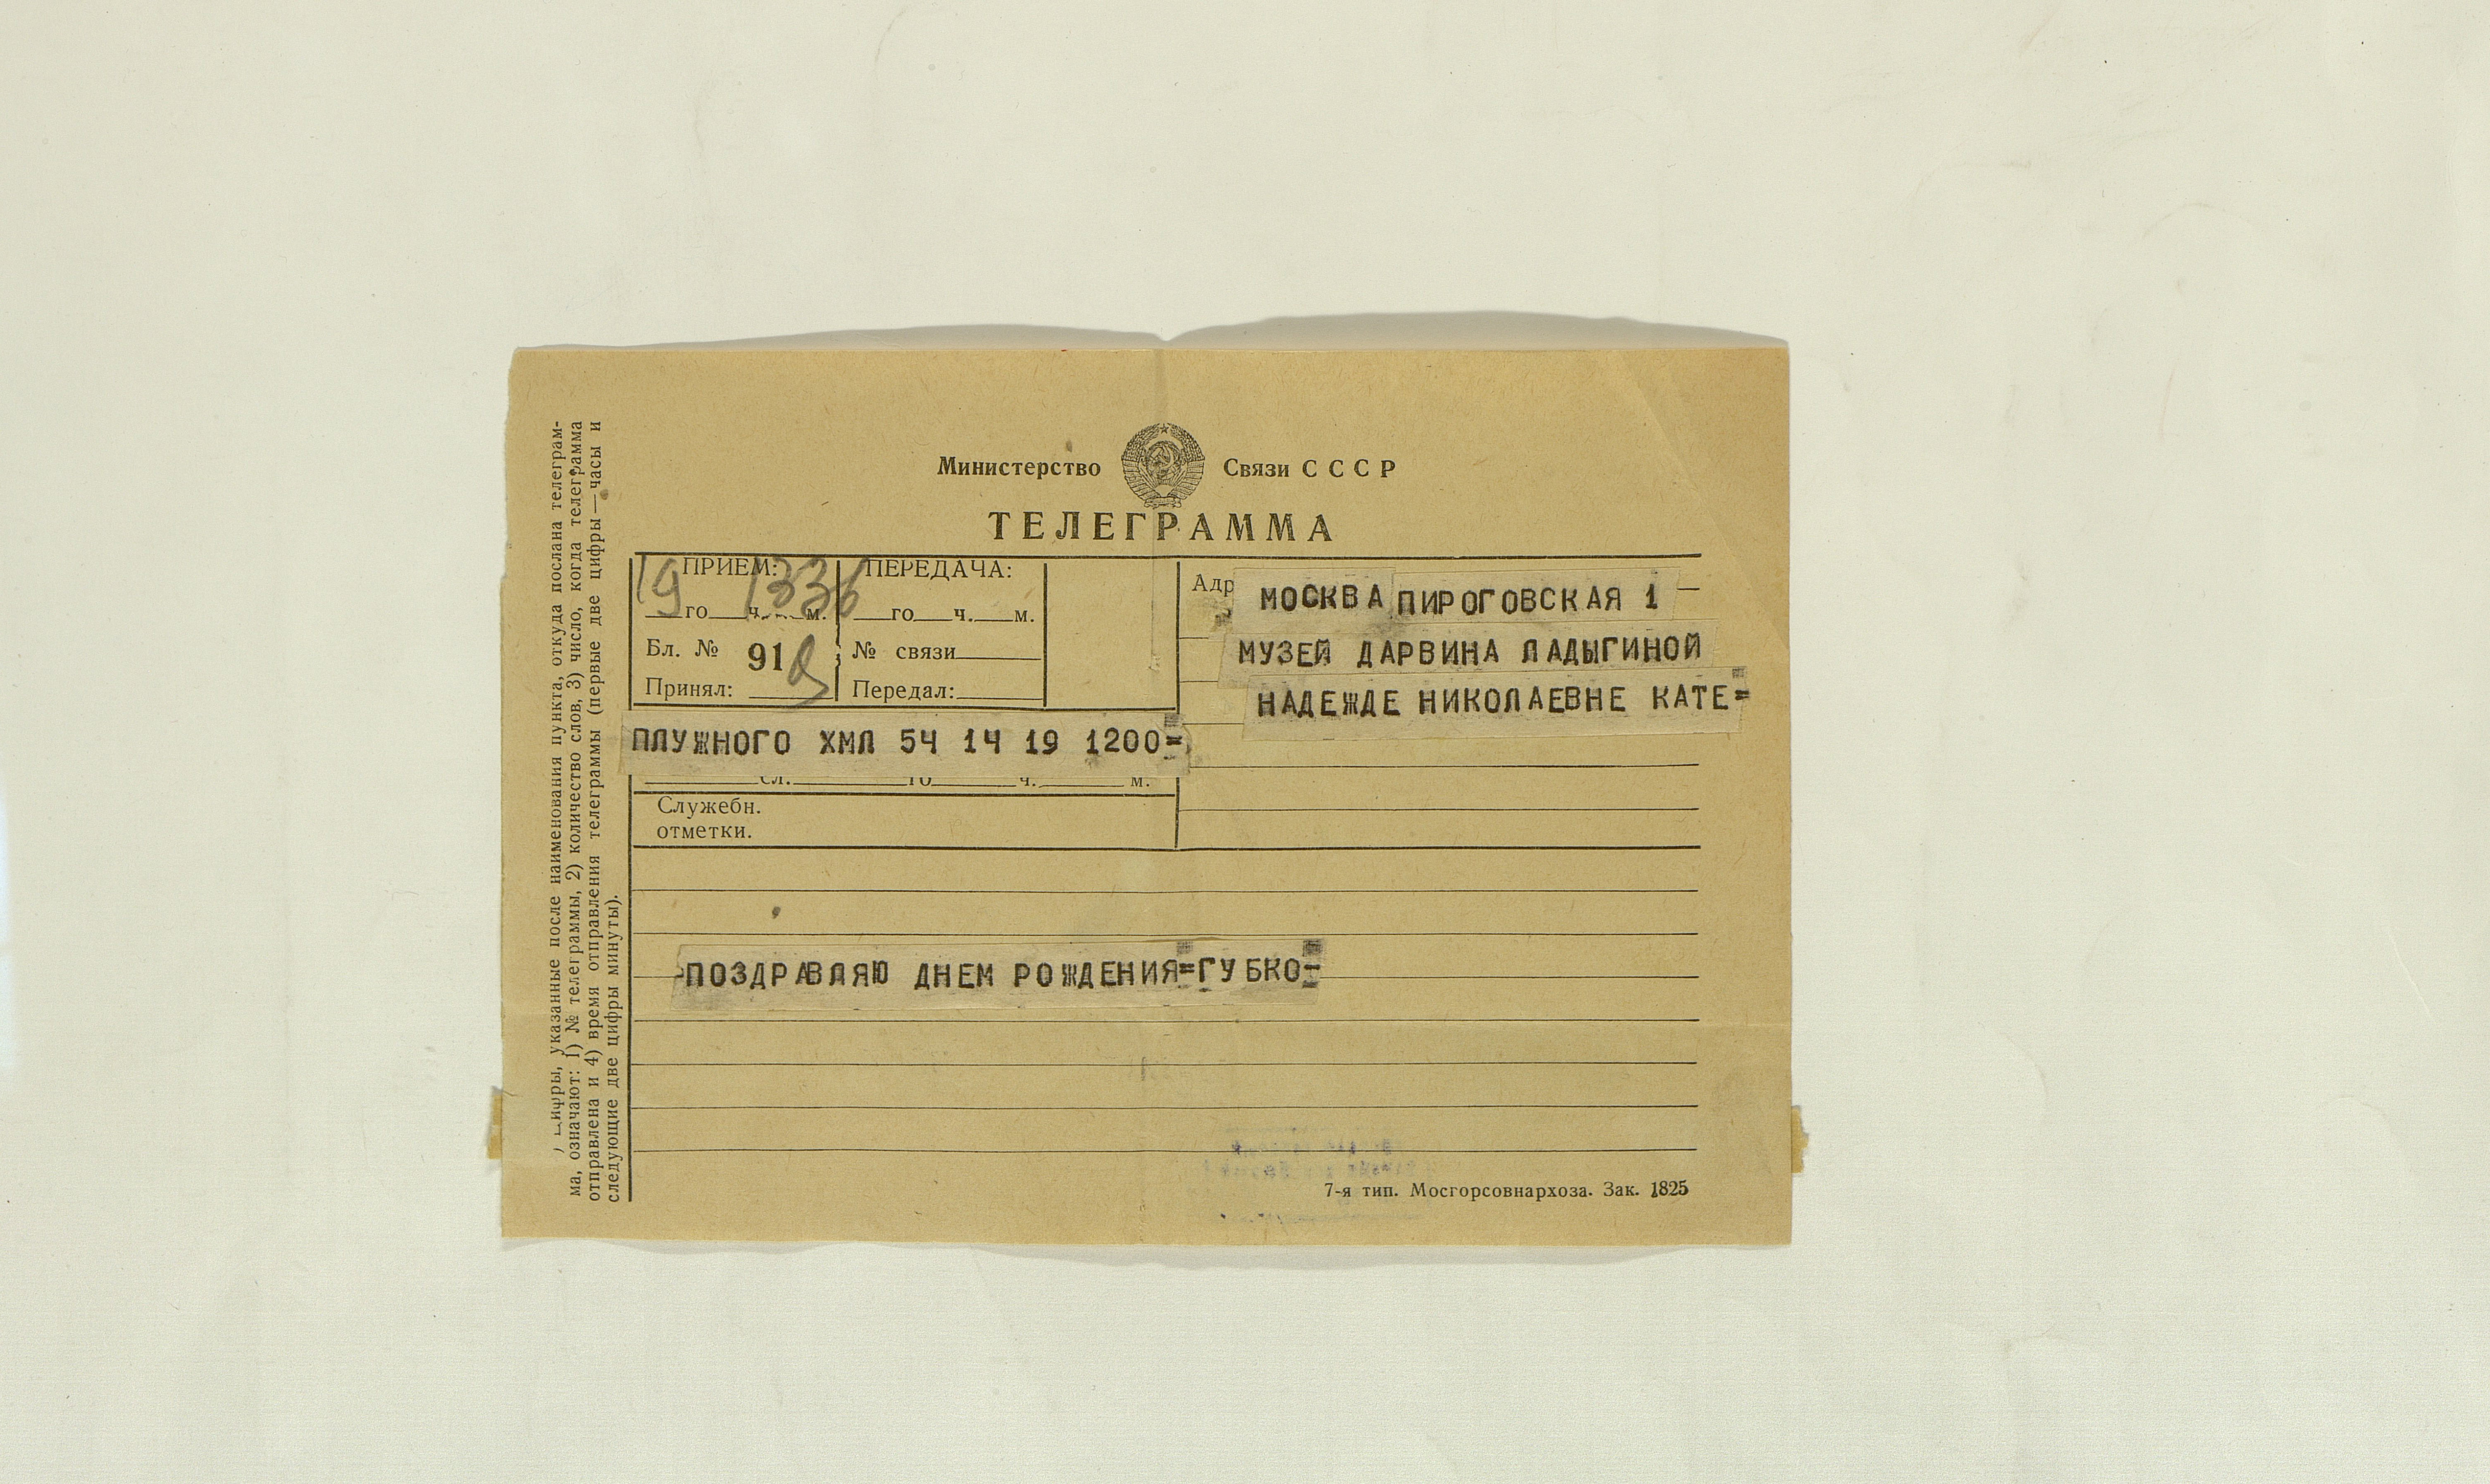 Министерство Связи СССР
ТЕЛЕГРАММА
ПРИЕМ:
19 го 13 ч. 36 м.
Бл. № 91
Принял:
ПЕРЕДАЧА:
го ч. м.
№ связи
Передал:
МОСКВА ПИРОГОВСКАЯ 1
МУЗЕЙ ДАРВИНА ЛАДЫГИНОЙ
НАДЕЖДЕ НИКОЛАЕВНЕ КАТЕ=
ПЛУЖНОГО ХМЛ 54 14 19 1200=
сл. го ч. м.
Служебн.
отметки.
-ПОЗДРАВЛЯЮ ДНЕМ РОЖДЕНИЯ=ГУБКО-
7-я тип. Мосгорсовнархоза. Зак. 1825
Цифры, указанные после наименования пункта, откуда послана телеграм-
ма, означают: 1) № телеграммы, 2) количество слов, 3) число, когда телеграмма
отправлена и 4) время отправления телеграммы (первые две цифры—часы и
следующие две цифры минуты).